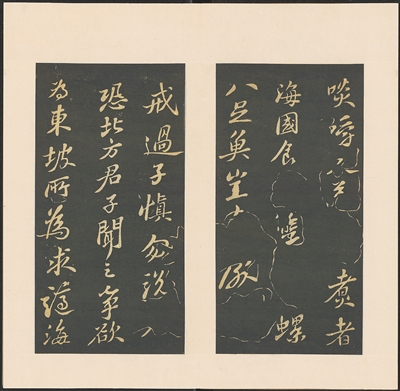 啖嚼又益煮者
海國食蟹螺
八足魚豈有
戒過子慎勿說
恐北方君子聞之爭欲
為東坡所為求謫海